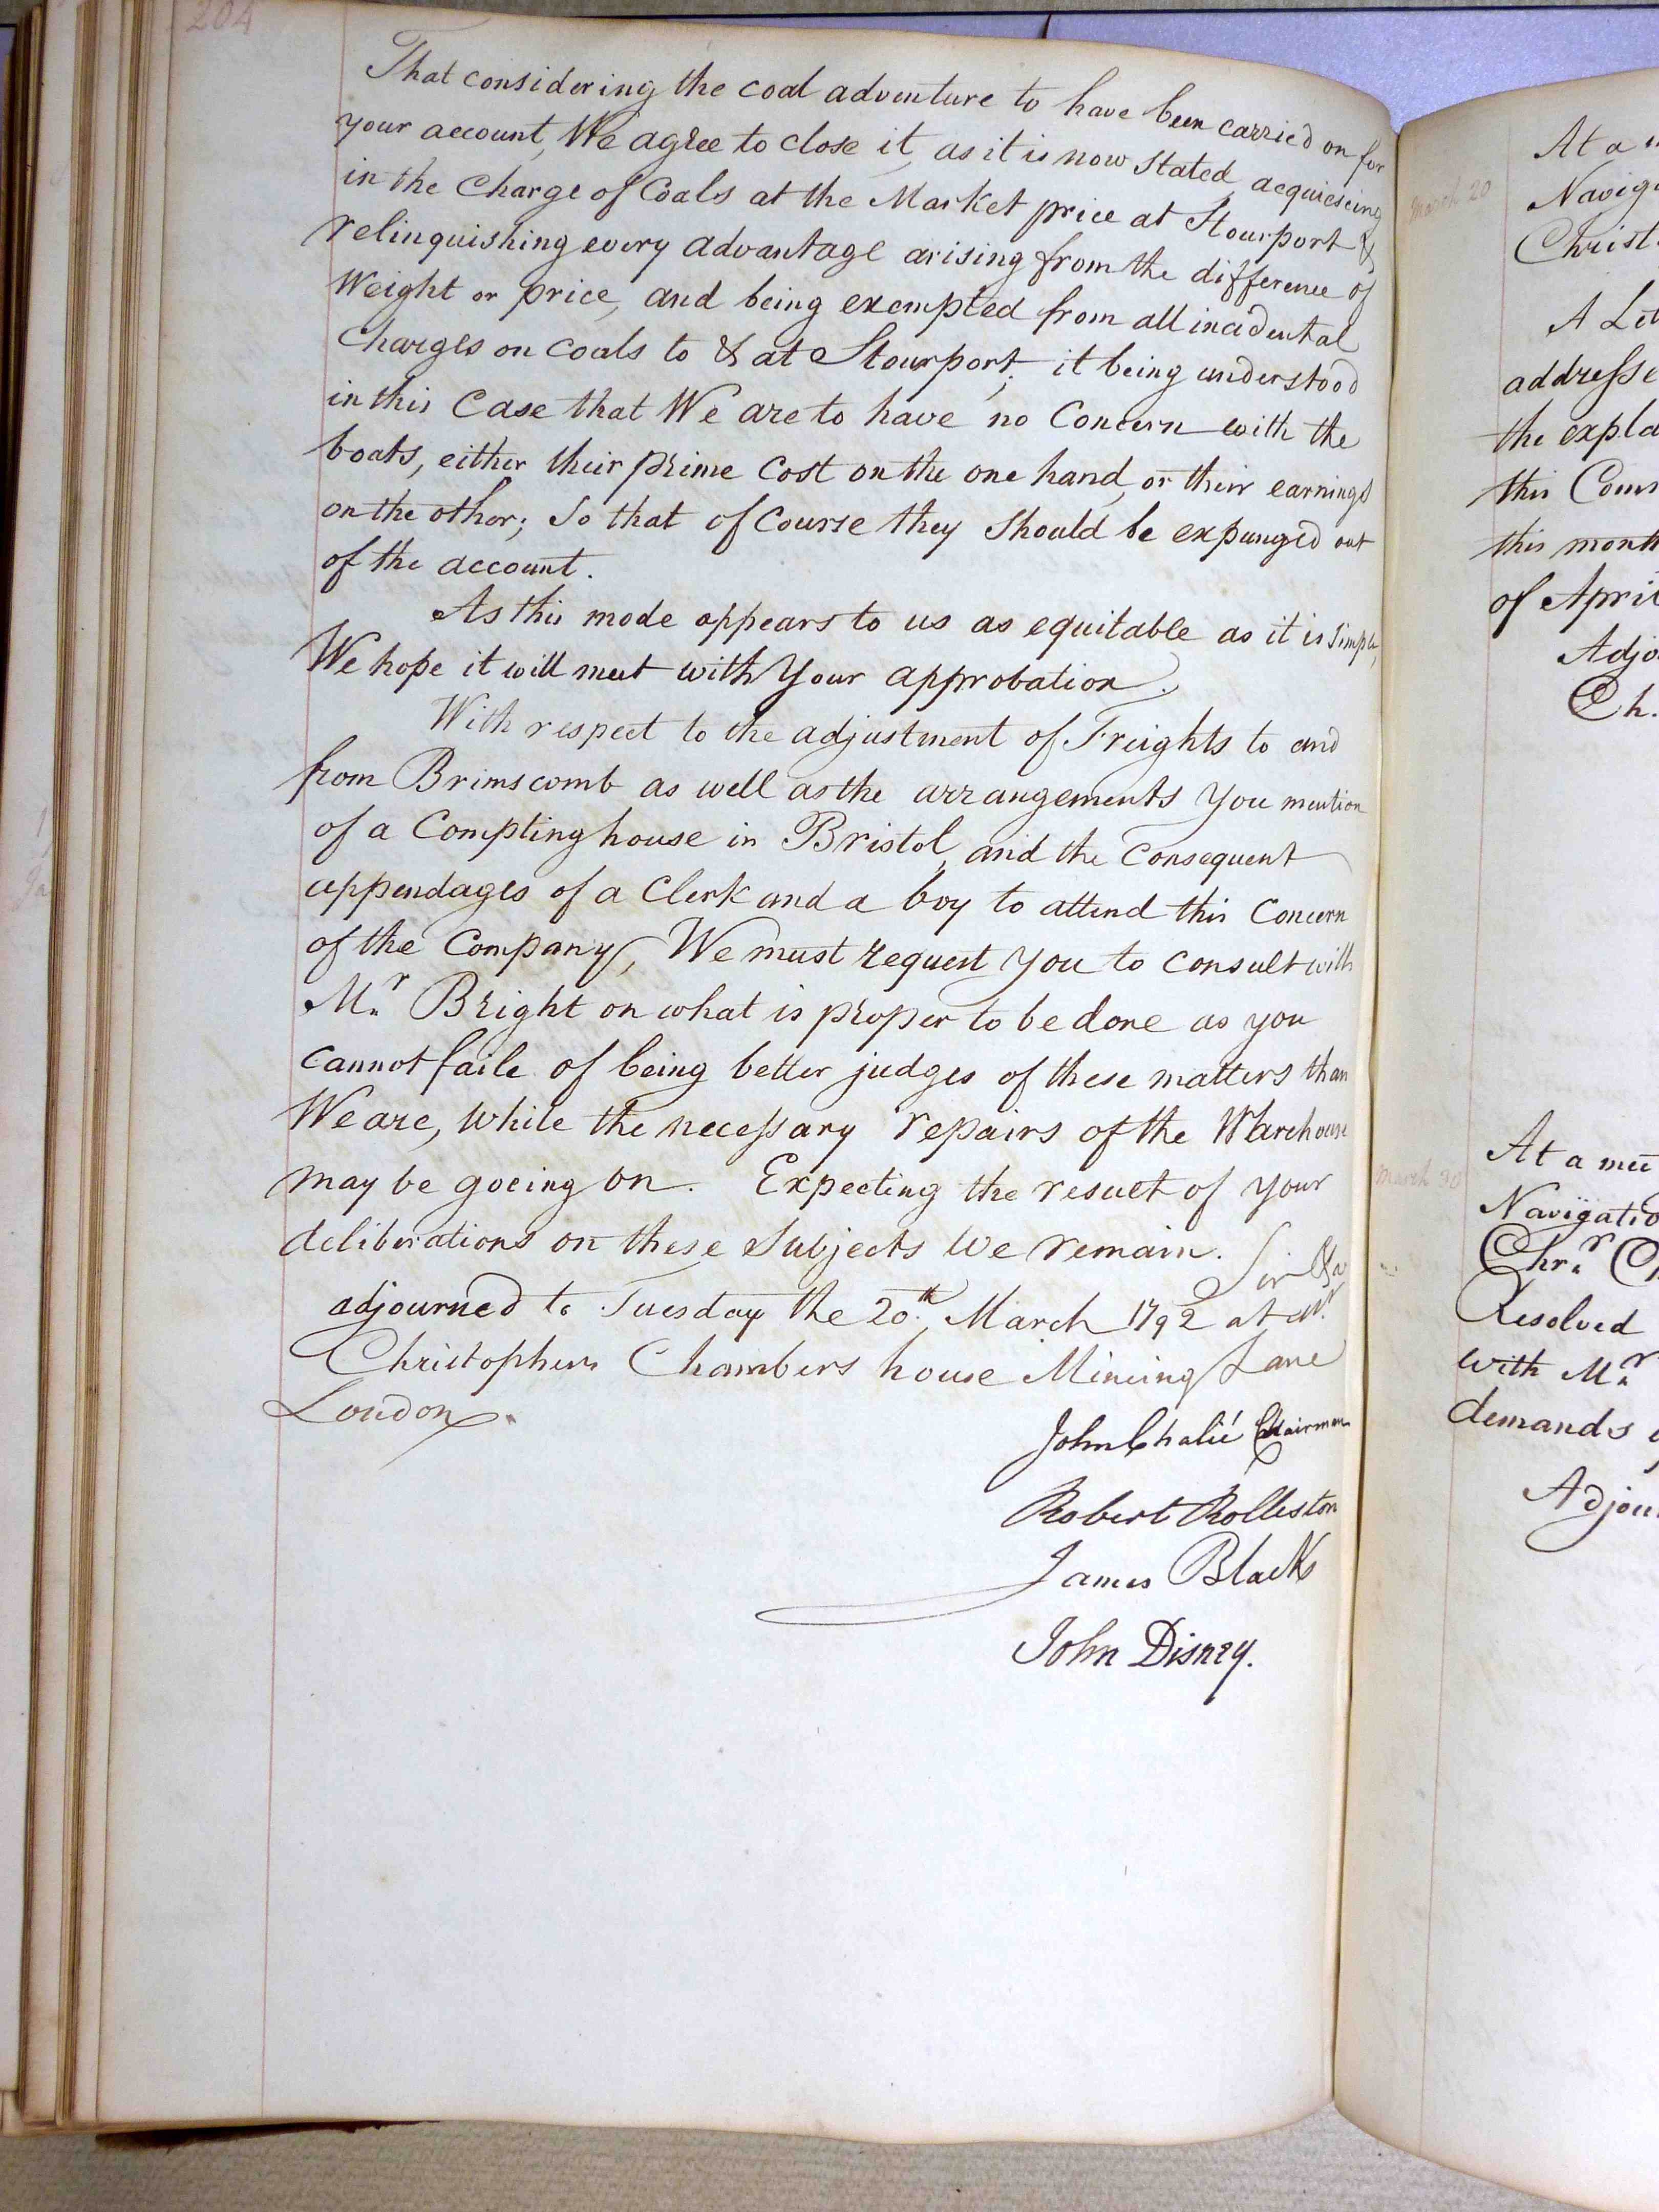 204
That considering the coal adventure to have been carried on for
your account, We agree to close it, as it is now stated, acquiescing
in the Charge of Coals at the Market price at Stourport &
relinquishing every advantage arising from the difference of
Weight or price, and being exempted from all incidental
Charges on coals to & at Stourport; it being understood
in this Case that We are to have no Concern with the
boats, either their prime Cost on the one hand, or their earnings
on the other; So that of Course they should be expunged out
of the account.
As this mode appears to us as equitable as it is simple,
We hope it will meet with Your approbation.
With respect to the adjustment of Freights to and
from Brimscomb as well as the arrangements You mention
of a Compting house in Bristol, and the Consequent
appendages of a Clerk and a boy to attend this Concern
of the Company, We must request You to consult with
Mr. Bright on what is proper to be done as you
cannot faile of being better judges of these matters than
We are, while the necessary repairs of the Warehouse
may be goeing on. Expecting the result of your
deliberations on these Subjects We remain. Sir &a
adjourned to Tuesday the 20th. March 1792 at Mr.
Christophers Chambers house Mincing Lane
London.
John Chalié Chairman
Robert Rolleston
James Black
John Disney.
March 20
At a
Navig
Christ
A Let
addresse
the expla
this Com
this month
of April
Adjo
Ch.
March 30
At a mee
Navigatio
Chr. Ch
Resolved
with Mr.
demands
Adjou